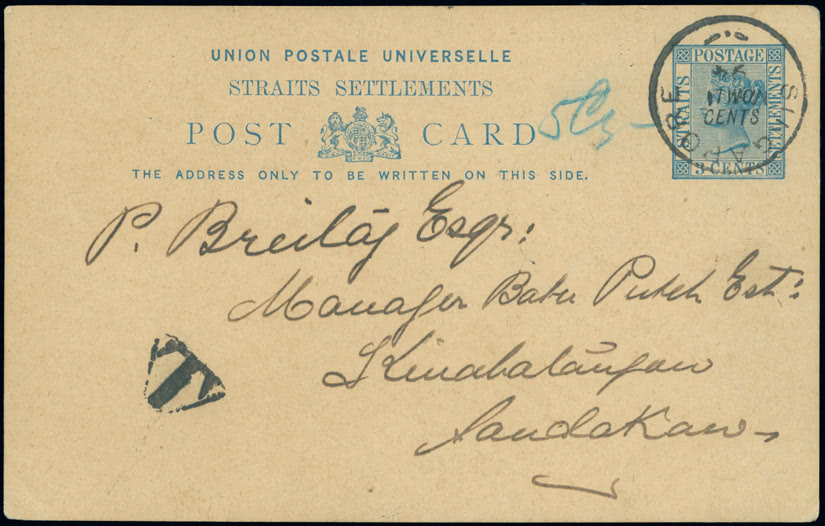 UNION POSTALE UNIVERSELLE
STRAITS SETTLEMENTS
POST CARD
THE ADDRESS ONLY TO BE WRITTEN ON THIS SIDE.
POSTAGE
STRAITS
SETTLEMENTS
TWO
CENTS
3 CENTS
SINGAPORE
P. Breitag Esqr:
Manager Batu Puteh Est:
Kinabatangan
Sandakan
T